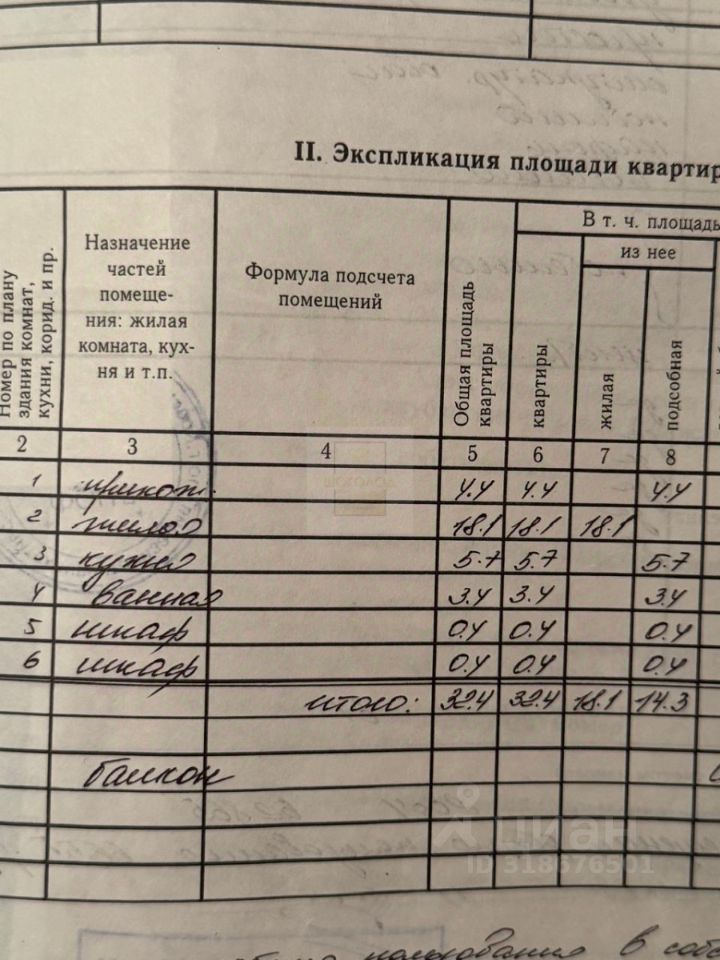 II. Экспликация площади квартир
Номер по плану здания комнат, кухни, корид. и пр.
Назначение частей помеще-
ния: жилая комната, кух-
ня и т.п.
Формула подсчета помещений
Общая площадь квартиры
В т. ч. площадь
квартиры
из нее
жилая
подсобная
2 3 4 5 6 7 8
1 прихож. 4.4 4.4 4.4
2 жилая 18.1 18.1 18.1
3 кухня 5.7 5.7 5.7
4 ванная 3.4 3.4 3.4
5 шкаф 0.4 0.4 0.4
6 шкаф 0.4 0.4 0.4
итого: 32.4 32.4 18.1 14.3
балкон
циан
ID 318676501
пользование в собс